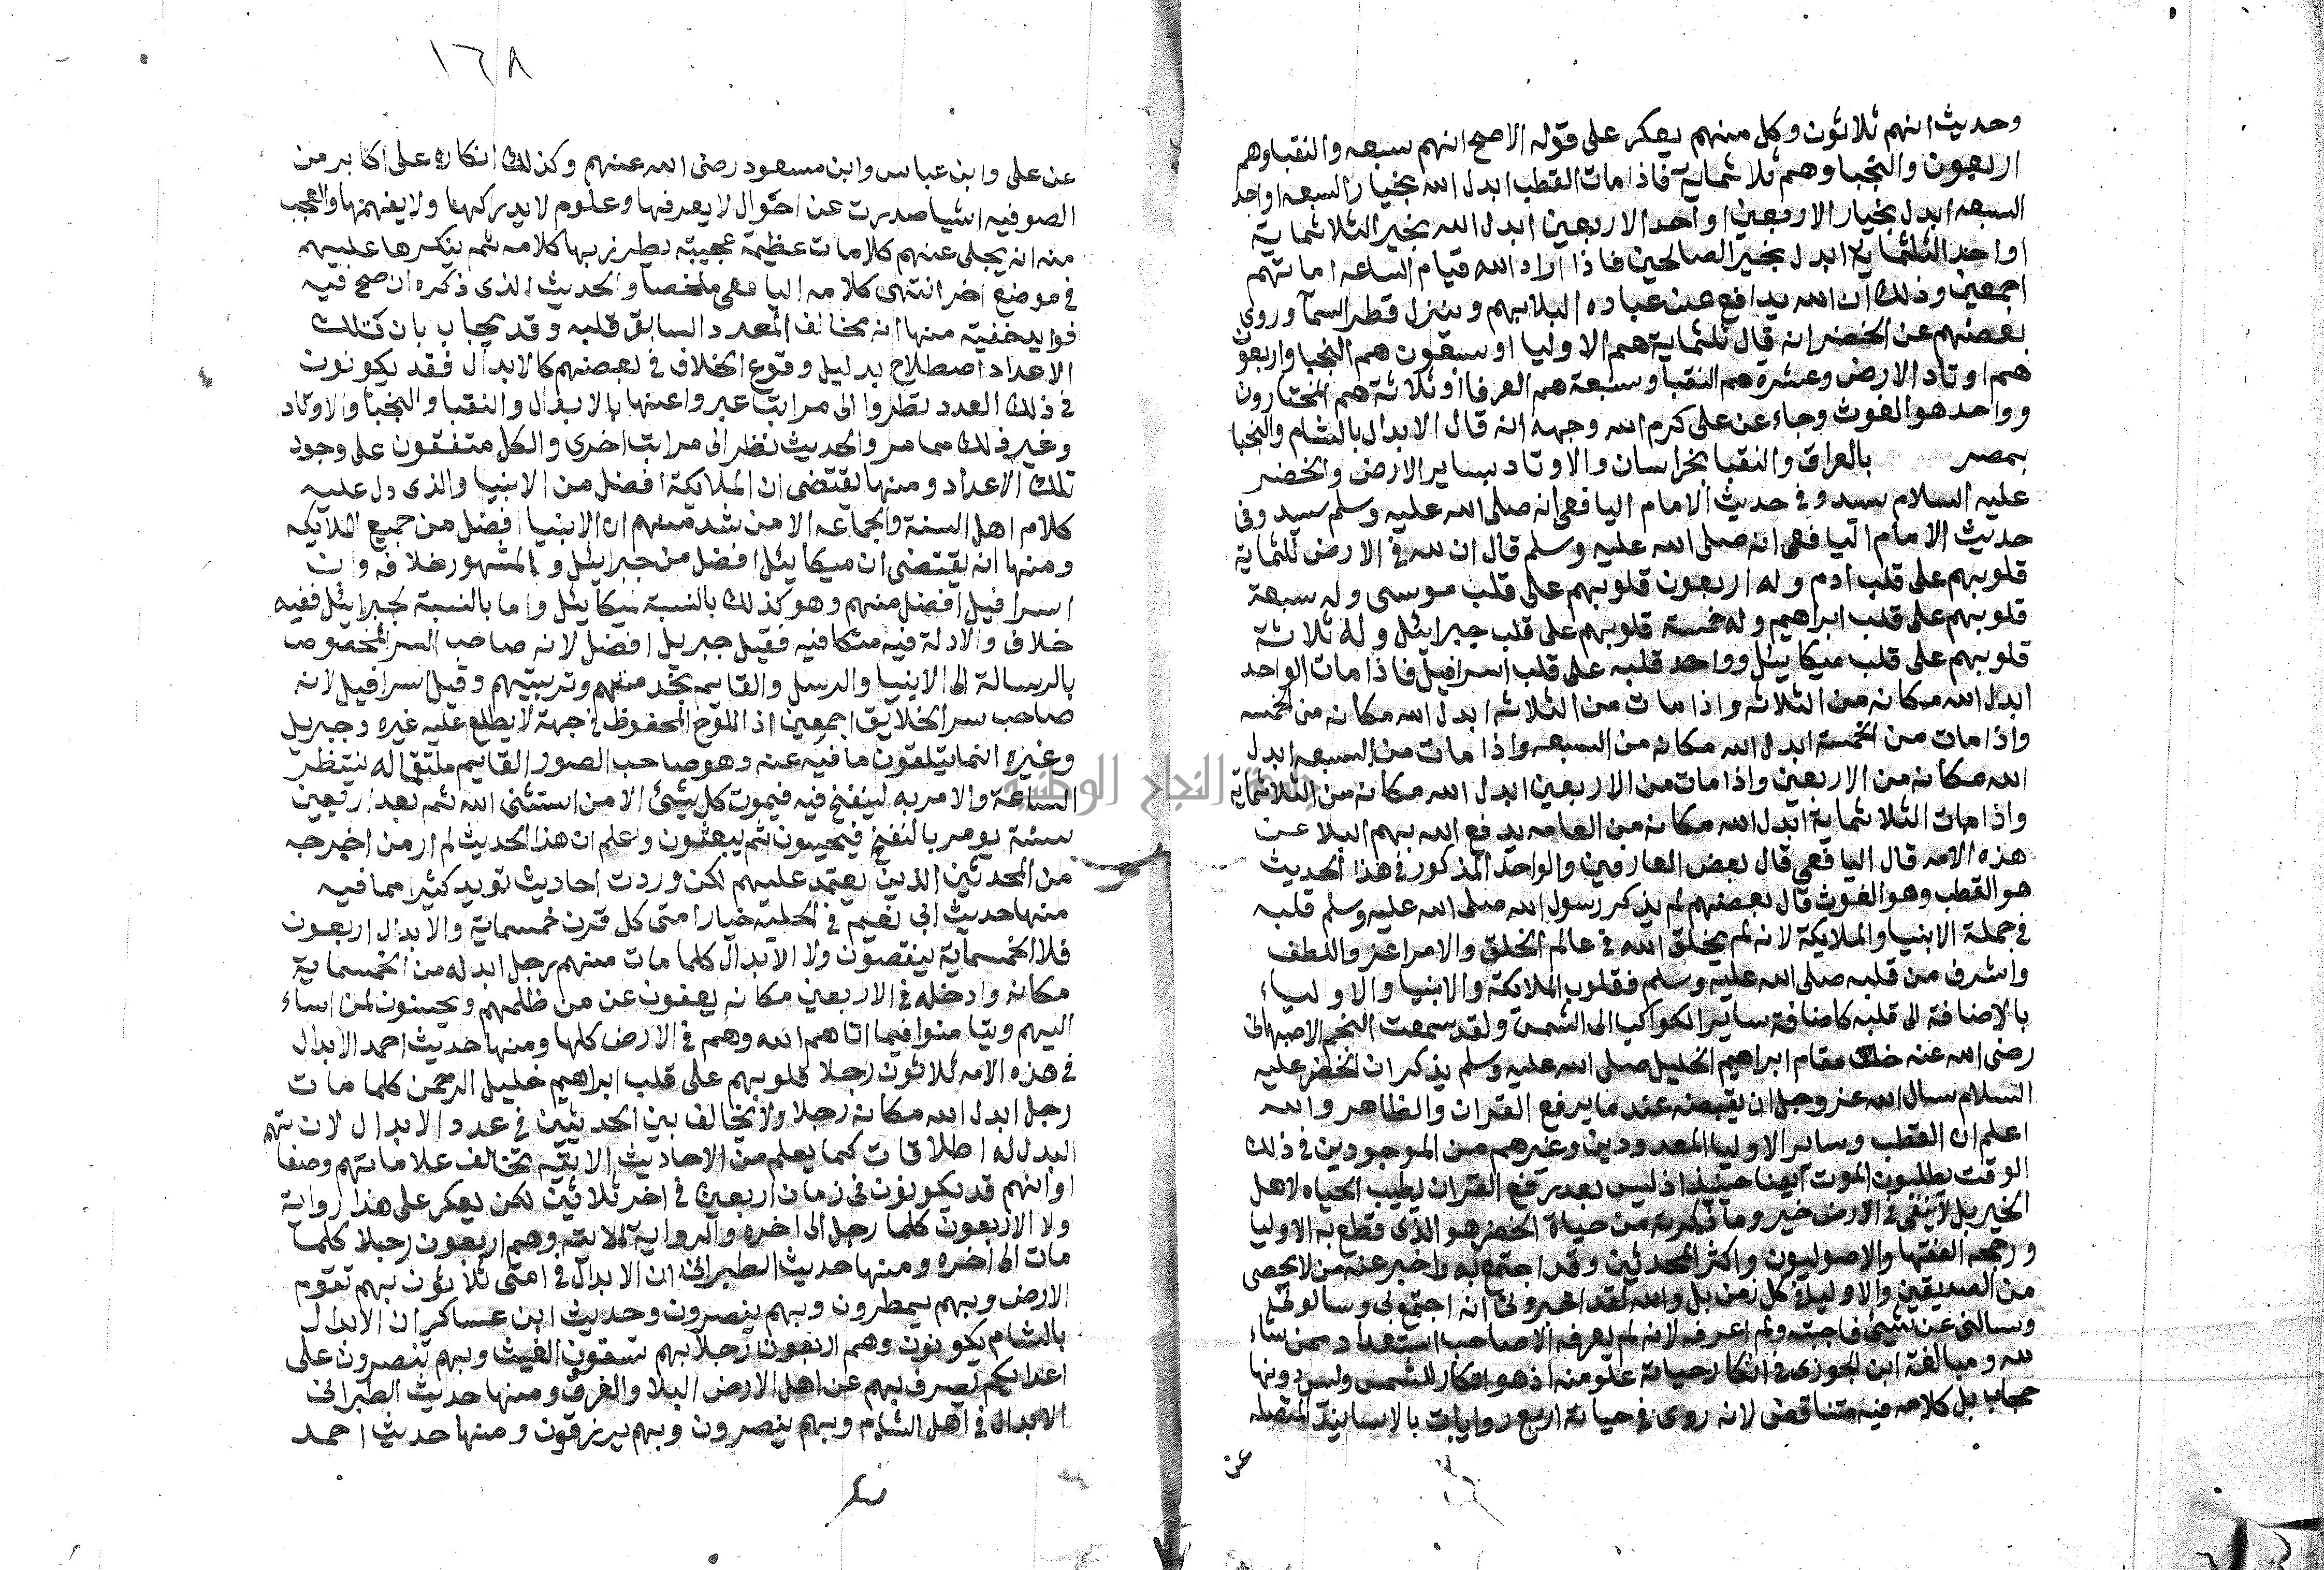 وحديث انهم ثلاثون وكل منهم يعكر على قوله الاصح انهم سبعه والنقبا وهم
اربعون والنجبا وهم ثلاثماية فاذا مات القطب ابدل الله بخيار السبعه او احد
السبعه ابدل بخيار الاربعين او احد الاربعين ابدل الله بخير الثلاثماية
او احد الثلثماية ابدل بخير الصالحين فاذا اراد الله قيام الساعه اماتهم
اجمعين وذلك ان الله يدافع عن عباده البلا بهم وينزل قطر السمآ وروى
بعضهم عن الخضر انه قال ثلثماية هم الاوليا وسبعون هم النجبا واربعون
هم اوتاد الارض وعشرة هم النقبا وسبعة هم العرفا وثلاثة هم المختارون
وواحد هو الغوث وجاء عن على كرم الله وجهه انه قال الابدال بالشام والنجبا
بمصر بالعراق والنقبا بخراسان والاوتاد بساير الارض والخضر
عليه السلام سيد وفى حديث الامام اليافعى انه صلى الله عليه وسلم سيد وفى
حديث الامام اليافعى انه صلى الله عليه وسلم قال ان لله فى الارض ثلثماية
قلوبهم على قلب ادم وله اربعون قلوبهم على قلب موسى وله سبعة
قلوبهم على قلب ابراهيم وله خمسة قلوبهم على قلب جبرايئل وله ثلاثة
قلوبهم على قلب ميكايئل وواحد قلبه على قلب اسرافيل فاذا مات الواحد
ابدل الله مكانه من الثلاثه واذا مات من الثلاثه ابدل الله مكانه من الخمسه
واذا مات من الخمسة ابدل الله مكانه من السبعه واذا مات من السبعه ابدل
الله مكانه من الاربعين واذا مات من الاربعين ابدل الله مكانه من الثلاثماية
واذا مات الثلاثماية ابدل الله مكانه من العامه يدفع الله بهم البلا عن
هذه الامه قال اليافعى قال بعض العارفين والواحد المذكور فى هذا الحديث
هو القطب وهو الغوث قال بعضهم لم يذكر رسول الله صلى الله عليه وسلم قلبه
فى جملة الانبيا والملايكة لانه لم يخلق الله فى عالم الخلق والامر اعز والطف
واشرف من قلبه صلى الله عليه وسلم فقلوب الملايكة والانبيا والاولياء
بالاضافة الى قلبه كاضافة ساير الكواكب الى الشمس ولقد سمعت النجم الاصبهانى
رضى الله عنه خلف مقام ابراهيم الخليل صلى الله عليه وسلم يذكر ان الخضر عليه
السلام سال الله عز وجل ان يقبضه عند ما يرفع القران والظاهر والله
اعلم ان القطب وساير الاوليا المعدودين وغيرهم من الموجودين فى ذلك
الوقت يطلبون الموت ايضا حينئذ اذ ليس بعد رفع القران يطيب الحياه لاهل
الخير بل لا يبقى فى الارض خير وما ذكرته من حياة الخضر هو الذى قطع به الاوليا
ورجحه الفقها والاصوليون واكثر المحدثين وقد اجتمع به واخبر عنه من لا يحصى
من الصديقين والاوليا فى كل زمن بل والله لقد اخبرونى انه اجتمع بى وسالونى
وسالنى عن شيئ فاجبته ولم اعرفه لانه لم يعرفه الا صاحب استعداد ممن شاء
لله ومبالغة ابن الجوزى فى انكار حياته غلو منه اذ هو انكار للشمس وليس دونها
حجاب بل كلامه فيه متناقض لانه روى فى حياته اربع روايات بالاسانيد المتصله
عن
١٦٨
عن على وابن عباس وابن مسعود رضى الله عنهم وكذلك انكاره على اكابر من
الصوفيه اشيا صدرت عن احوال لا يعرفها وعلوم لا يدركها ولا يفهمها والعجب
منه انه يجلى عنهم كلامات عظيمة عجيبة يطرز بها كلامه ثم ينكرها عليهم
فى موضع اخر انتهى كلامه اليافعى ملخصا والحديث الذى ذكره ان صح فيه
فوايد خفية منها انه مخالف المعدد السابق قلبه وقد يجاب بان تلك
الاعداد اصطلاح بدليل وقوع الخلاف فى بعضهم كالابدال فقد يكونون
فى ذلك العدد نظروا الى مراتب عبروا عنها بالابدال والنقبا والنجبا والاوتاد
وغير ذلك مما مر والحديث نظر الى مراتب اخرى والكل متفقون على وجود
تلك الاعداد ومنها يقتضى ان الملايكة افضل من الانبيا والذى دل عليه
كلام اهل السنة والجماعه الا من شد منهم ان الانبيا افضل من جميع الملايكه
ومنها انه يقتضى ان ميكايئل افضل من جبرايئل والمشهور خلافه وان
اسرافيل افضل منهم وهو كذلك بالنسبة لميكايئل واما بالنسبة لجبرايئل ففيه
خلاف والادلة فيه متكافيه فقيل جبريل افضل لانه صاحب السر المخصوص
بالرسالة الى الانبيا والرسل والقايم بخدمتهم وتربيتهم وقيل اسرافيل لانه
صاحب سر الخلايق اجمعين اذ اللوح المحفوظ فى جبهة لا يطلع عليه غيره وجبريل
وغيره انما يتلقون ما فيه عنه وهو صاحب الصور القايم ملتقما له ينتظر
الساعة والامر به لينفخ فيه فيموت كل شيئ الا من استثنى الله ثم بعد اربعين
سنة يومر بالنفخ فيحييون ثم يبعثون واعلم ان هذا الحديث لم ار من اخرجه
من المحدثين الذين يعتمد عليهم لكن وردت احاديث تويد كثيرا مما فيه
منها حديث ابى نعيم فى الحلية خيار امتى كل قرن خمسماية والابدال اربعون
فلا الخمسماية ينقصون ولا الابدال كلما مات منهم رجل ابدله من الخمسماية
مكانه وادخله فى الاربعين مكانه يعفون عن من ظلمهم ويحسنون لمن اساء
اليهم ويتامنوا فيما اتاهم الله وهم فى الارض كلها ومنها حديث احمد الابدال
فى هذه الامه ثلاثون رجلا قلوبهم على قلب ابراهيم خليل الرحمن كلما مات
رجل ابدل الله مكانه رجلا ولا يخالف بين الحديثين فى عدد الابدال لان
البدل له اطلاقات كما يعلم من الاحاديث الاتيه تخالف علاماتهم وصفا تهم
او انهم قد يكونون فى زمان اربعين فى اخر ثلاثين لكن يعكر على هذا رواية
ولا الاربعون كلما رجل الى اخره والرواية الاتيه وهم اربعون رجلا كلما
مات الى اخره ومنها حديث الطبرانى ان الابدال فى امتى ثلاثون بهم تقوم
الارض وبهم يمطرون وبهم ينصرون وحديث ابن عساكر ان الابدال
بالشام يكونون وهم اربعون رجلا بهم تسقون الغيث وبهم تنصرون على
اعدايكم يصرف بهم عن اهل الارض البلا والغرق ومنها حديث الطبرانى
الابدال فى اهل الشام وبهم ينصرون وبهم يرزقون ومنها حديث احمد